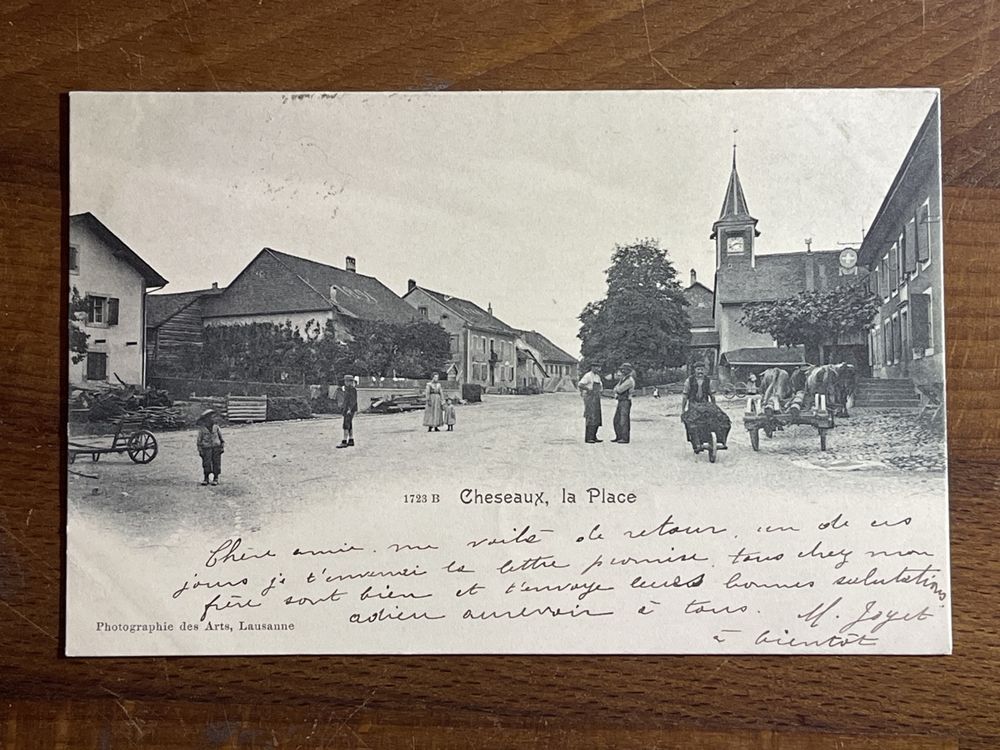 1723 B Cheseaux, la Place
Chère amie, me voilà de retour, un de ces
jours je t'enverrai la lettre promise, tous chez mon
frère sont bien et t'envoye leurs bonnes salutations
adieu aurevoir à tous. M. Joyet
à bientôt
Photographie des Arts, Lausanne